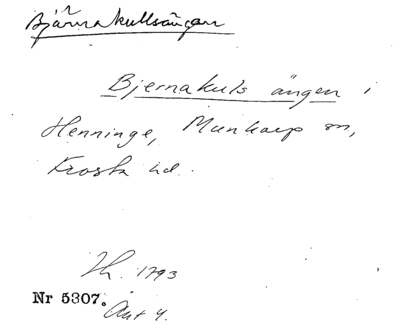 Bjärnakullsängen
Bjernakuls ängen i
Henninge, Munkarp sn,
Frosta hd.
Th. 1793
Nr 5307.
Akt 4.